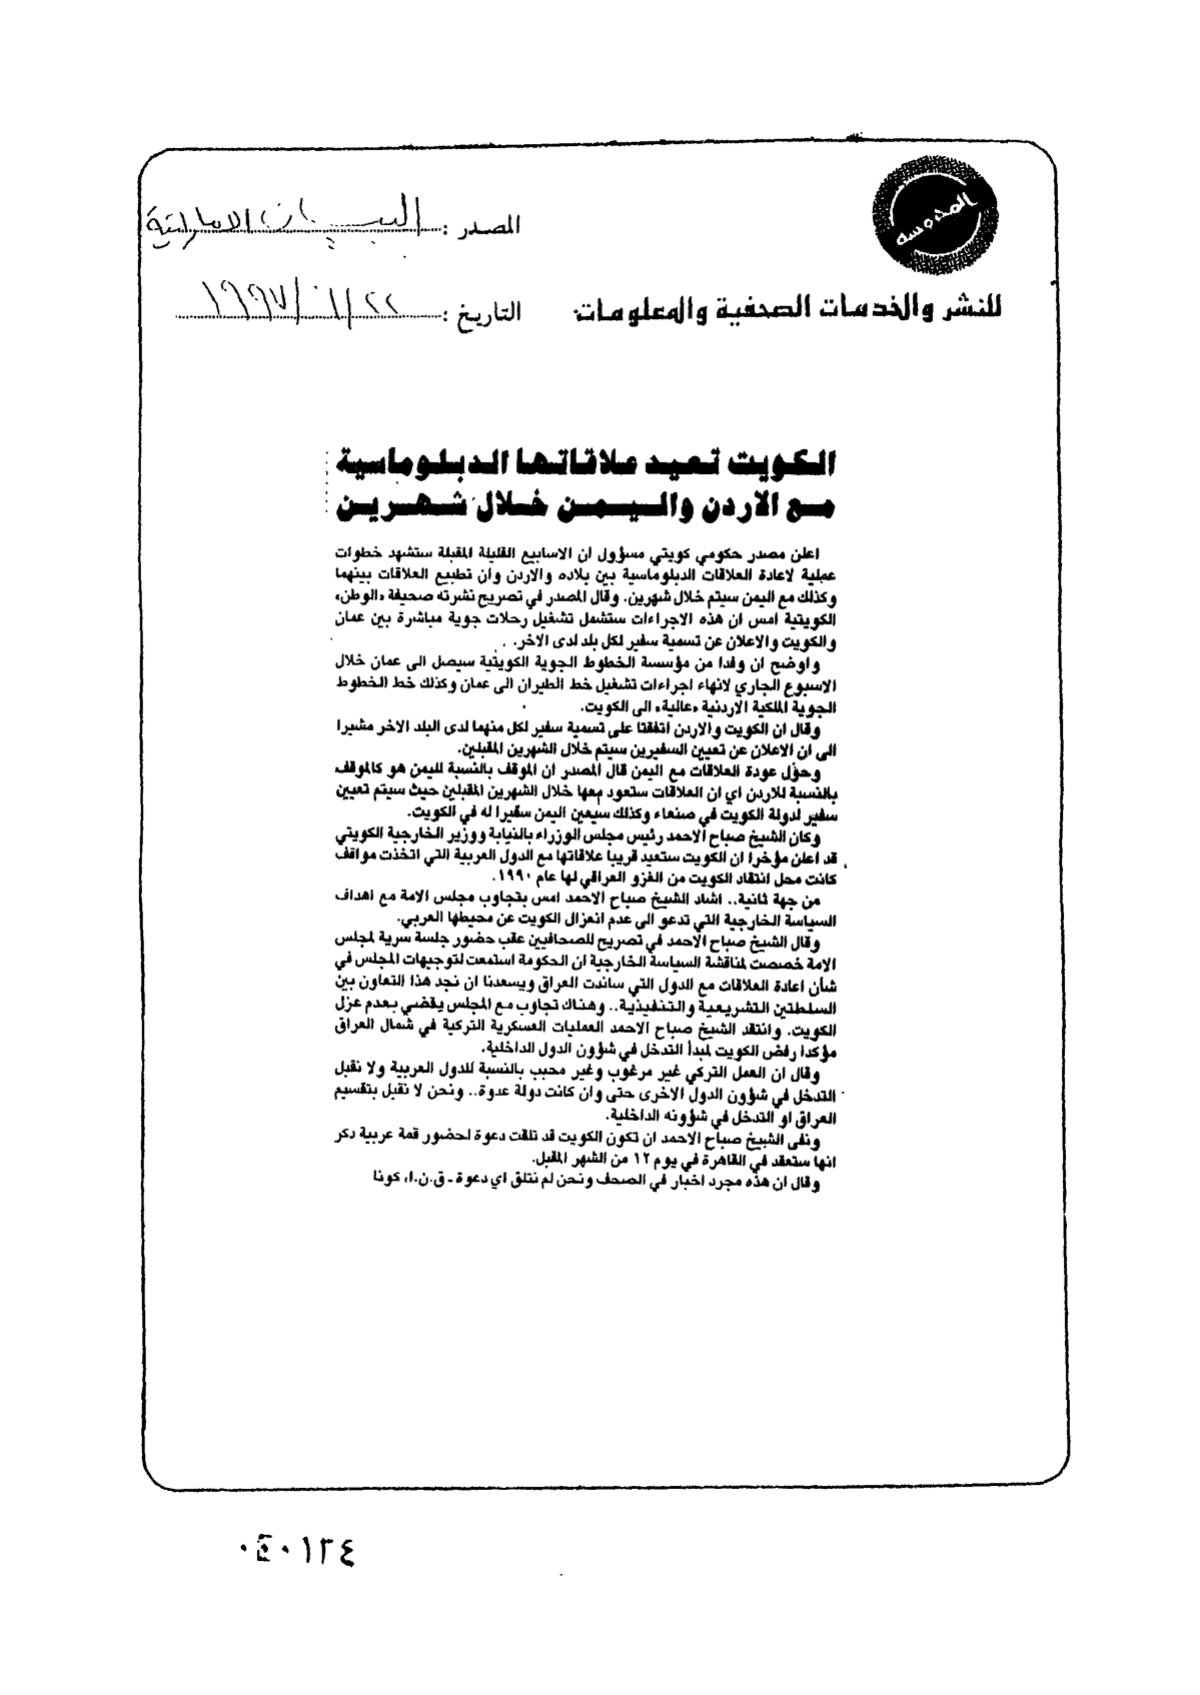 المصدر : البيان الاماراتية
للنشر والخدمات الصحفية والمعلومات
التاريخ : ٢٢/ ١٩٩٧/
الكويت تعيد علاقاتها الدبلوماسية
مع الاردن واليمن خلال شهرين
اعلن مصدر حكومي كويتي مسؤول ان الاسابيع القليلة المقبلة ستشهد خطوات
عملية لاعادة العلاقات الدبلوماسية بين بلاده والاردن وان تطبيع العلاقات بينهما
وكذلك مع اليمن سيتم خلال شهرين. وقال المصدر في تصريح نشرته صحيفة «الوطن»
الكويتية امس ان هذه الاجراءات ستشمل تشغيل رحلات جوية مباشرة بين عمان
والكويت والاعلان عن تسمية سفير لكل بلد لدى الاخر.
واوضح ان وفدا من مؤسسة الخطوط الجوية الكويتية سيصل الى عمان خلال
الاسبوع الجاري لانهاء اجراءات تشغيل خط الطيران الى عمان وكذلك خط الخطوط
الجوية الملكية الاردنية «عالية» الى الكويت.
وقال ان الكويت والاردن اتفقتا على تسمية سفير لكل منهما لدى البلد الاخر مشيرا
الى ان الاعلان عن تعيين السفيرين سيتم خلال الشهرين المقبلين.
وحول عودة العلاقات مع اليمن قال المصدر ان الموقف بالنسبة لليمن هو كالموقف
بالنسبة للاردن اي ان العلاقات ستعود معها خلال الشهرين المقبلين حيث سيتم تعيين
سفير لدولة الكويت في صنعاء وكذلك سيعين اليمن سفيرا له في الكويت.
وكان الشيخ صباح الاحمد رئيس مجلس الوزراء بالنيابة ووزير الخارجية الكويتي
قد اعلن مؤخرا ان الكويت ستعيد قريبا علاقاتها مع الدول العربية التي اتخذت مواقف
كانت محل انتقاد الكويت من الغزو العراقي لها عام ١٩٩٠.
من جهة ثانية.. اشاد الشيخ صباح الاحمد امس بتجاوب مجلس الامة مع اهداف
السياسة الخارجية التي تدعو الى عدم انعزال الكويت عن محيطها العربي.
وقال الشيخ صباح الاحمد في تصريح للصحافيين عقب حضور جلسة سرية لمجلس
الامة خصصت لمناقشة السياسة الخارجية ان الحكومة استمعت لتوجيهات المجلس في
شأن اعادة العلاقات مع الدول التي ساندت العراق ويسعدنا ان نجد هذا التعاون بين
السلطتين التشريعية والتنفيذية.. وهناك تجاوب مع المجلس يقضي بعدم عزل
الكويت. وانتقد الشيخ صباح الاحمد العمليات العسكرية التركية في شمال العراق
مؤكدا رفض الكويت لمبدأ التدخل في شؤون الدول الداخلية.
وقال ان العمل التركي غير مرغوب وغير محبب بالنسبة للدول العربية ولا نقبل
التدخل في شؤون الدول الاخرى حتى وان كانت دولة عدوة.. ونحن لا نقبل بتقسيم
العراق او التدخل في شؤونه الداخلية.
ونفى الشيخ صباح الاحمد ان تكون الكويت قد تلقت دعوة لحضور قمة عربية ذكر
انها ستعقد في القاهرة في يوم ١٢ من الشهر المقبل.
وقال ان هذه مجرد اخبار في الصحف ونحن لم نتلق اي دعوة ـ ق.ن.ا، كونا